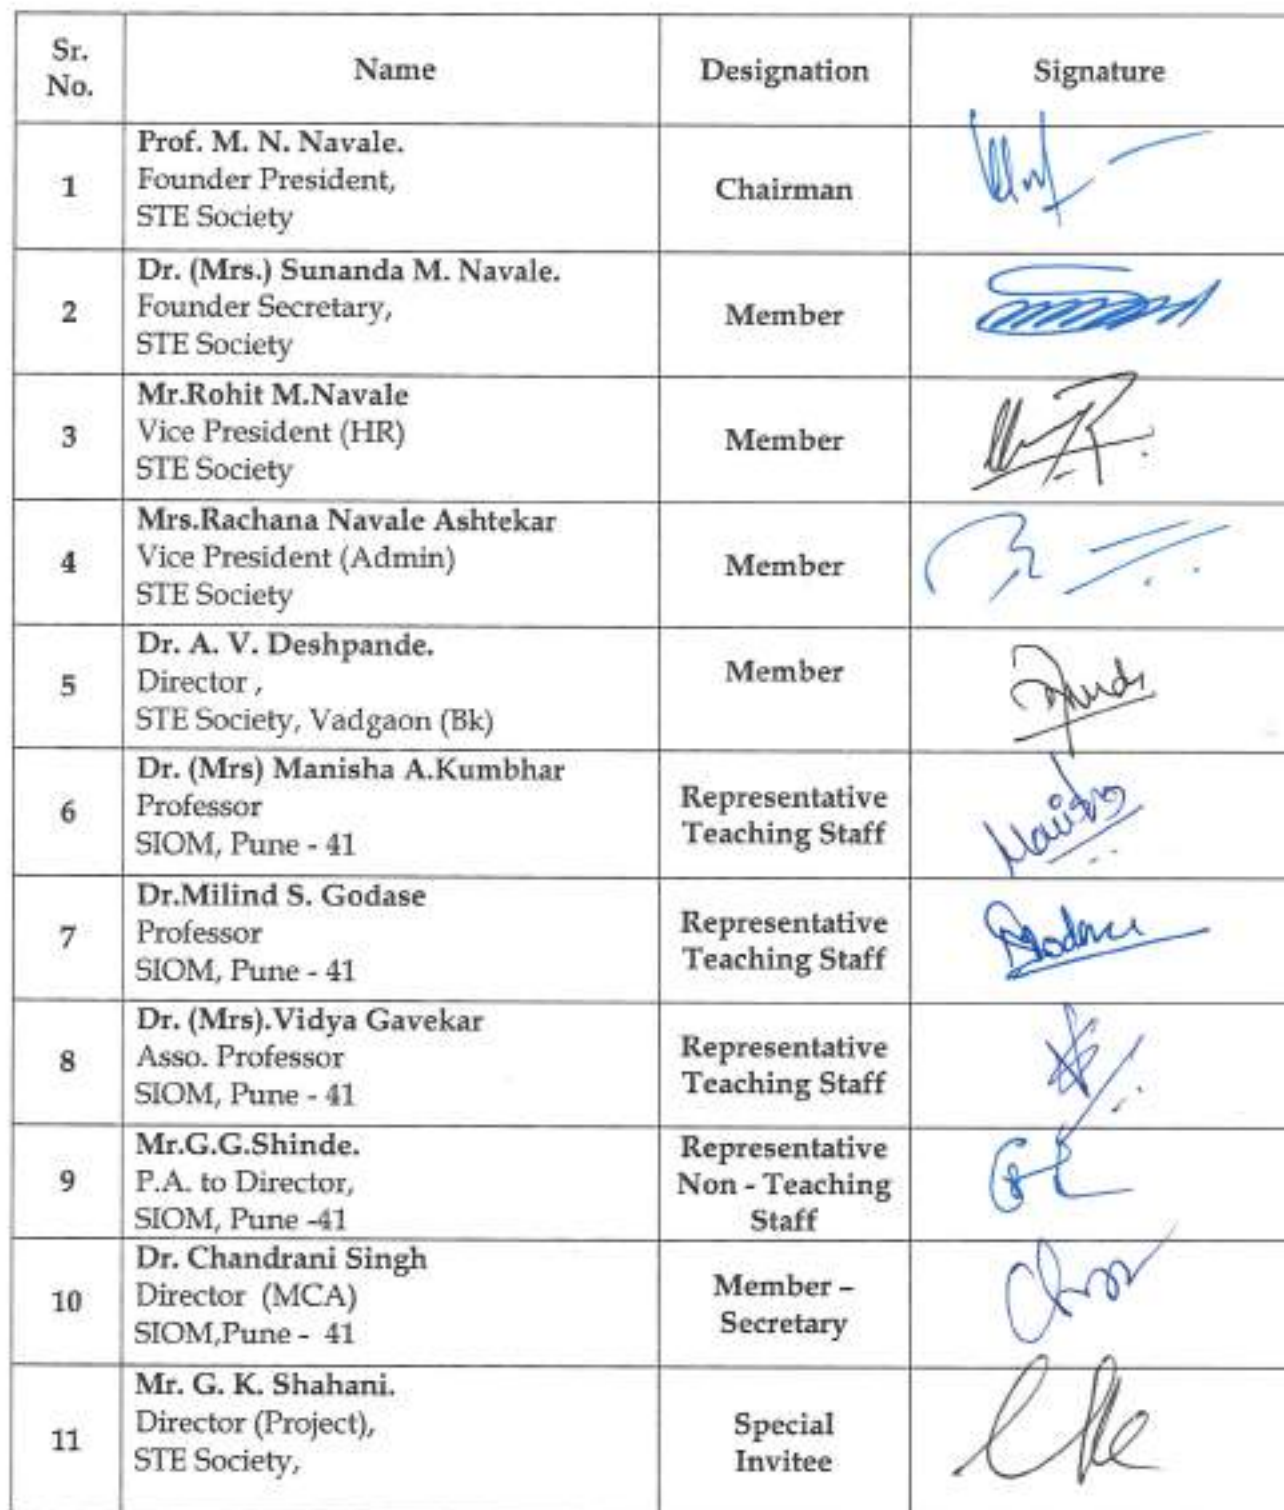 Sr. No.
Name
Designation
Signature
1
Prof. M. N. Navale.
Founder President,
STE Society
Chairman
2
Dr. (Mrs.) Sunanda M. Navale.
Founder Secretary,
STE Society
Member
3
Mr.Rohit M.Navale
Vice President (HR)
STE Society
Member
4
Mrs.Rachana Navale Ashtekar
Vice President (Admin)
STE Society
Member
5
Dr. A. V. Deshpande.
Director ,
STE Society, Vadgaon (Bk)
Member
6
Dr. (Mrs) Manisha A.Kumbhar
Professor
SIOM, Pune - 41
Representative
Teaching Staff
7
Dr.Milind S. Godase
Professor
SIOM, Pune - 41
Representative
Teaching Staff
8
Dr. (Mrs).Vidya Gavekar
Asso. Professor
SIOM, Pune - 41
Representative
Teaching Staff
9
Mr.G.G.Shinde.
P.A. to Director,
SIOM, Pune -41
Representative
Non - Teaching
Staff
10
Dr. Chandrani Singh
Director (MCA)
SIOM,Pune - 41
Member –
Secretary
11
Mr. G. K. Shahani.
Director (Project),
STE Society,
Special
Invitee